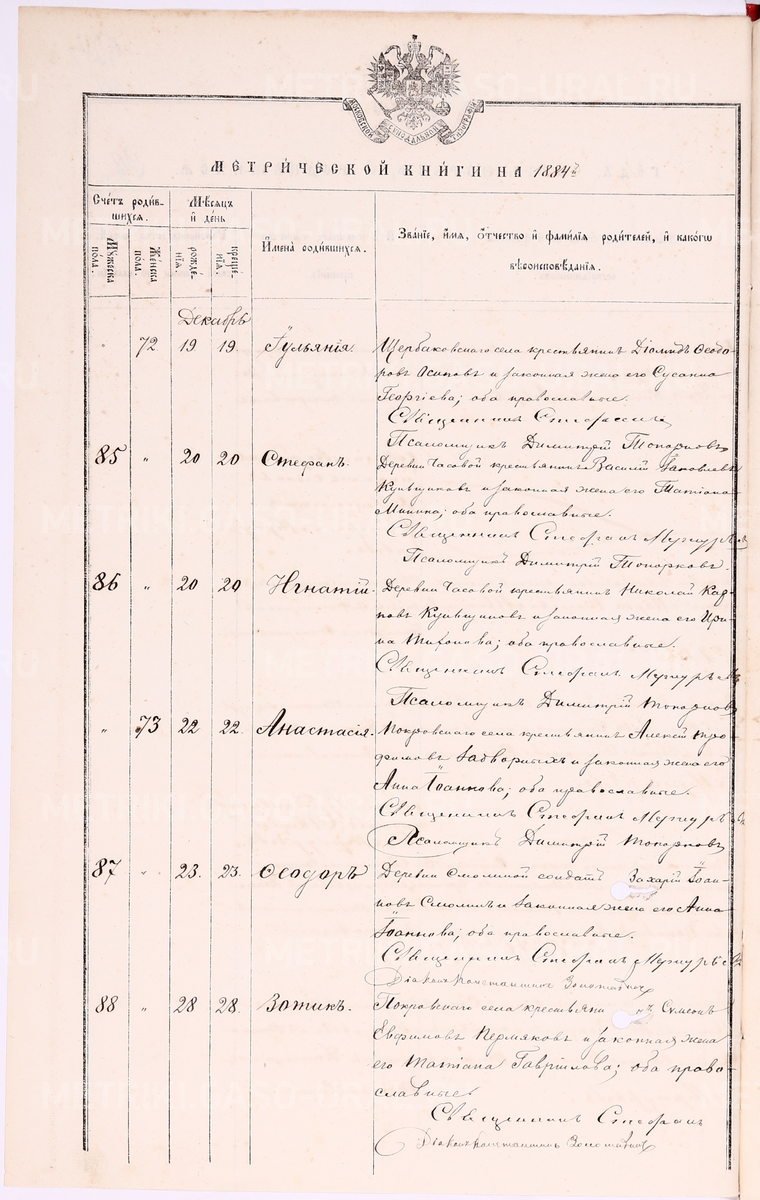 МОСКОВСКОЙ СѴНОДАЛЬНОЙ ТИПОГРАФІИ
МЕТРИ́ЧЕСКОЙ КНИ́ГИ НА 1884
Сче́тъ роди́вшихся.
Мѣ́сяцъ и де́нь
И҆мена̀ роди́вшихся.
Зва́нїе, и҆́мя, ѻ҆́тчество и҆ фами́лїя роди́телей, и҆ какѡ́гѡ вѣроисповѣ́данїѧ.
Мꙋ́жеска по́ла.
Же́нска по́ла.
рожде́нїѧ.
креще́нїѧ.
Декабрь
72 19 19. Іульянія. Щербаковскаго села крестьянинъ Діомидъ Ѳеодо-
ровъ Осиповъ и законная жена его Сусанна
Георгіева; оба православные.
Священникъ Стефанъ
Псаломщикъ Димитрій Топорковъ
85 " 20 20 Стефанъ. Деревни Часовой крестьянинъ Василій Іаковлевъ
и законная жена его Татіана
Минина; оба православные.
Священникъ Стефанъ
Псаломщикъ Димитрій Топорковъ.
86 " 20 20 Игнатій. Деревни Часовой крестьянинъ Николай Кар-
повъ и законная жена его Ири-
на Тихонова; оба православные.
Священникъ Стефанъ
Псаломщикъ Димитрій Топорковъ
" 73 22 22. Анастасія. Покровскаго села крестьянинъ Алексій Тро-
фимовъ Задворныхъ и законная жена его
Анна Іоаннова; оба православные.
Священникъ Стефанъ
Псаломщикъ Димитрій Топорковъ
87 " 23. 23. Ѳеодоръ Деревни Смолиной солдатъ Захарій Іоан-
новъ Смолинъ и законная жена его Анна
Іоаннова; оба православные.
Священникъ Стефанъ
Діаконъ Константинъ
88 " 28 28. Зотикъ. Покровскаго села крестьянинъ Сумеонъ
Евфимовъ Пермяковъ и законная жена
его Татіана Гавріилова; оба право-
славные.
Священникъ Стефанъ
Діаконъ Константинъ